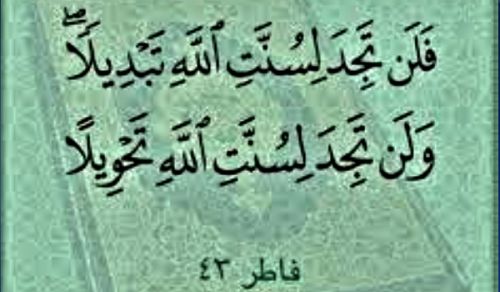 فَلَن تَجِدَ لِسُنَّتِ ٱللَّهِ تَبْدِيلًاۖ
وَلَن تَجِدَ لِسُنَّتِ ٱللَّهِ تَحْوِيلًا
فاطر ٤٣